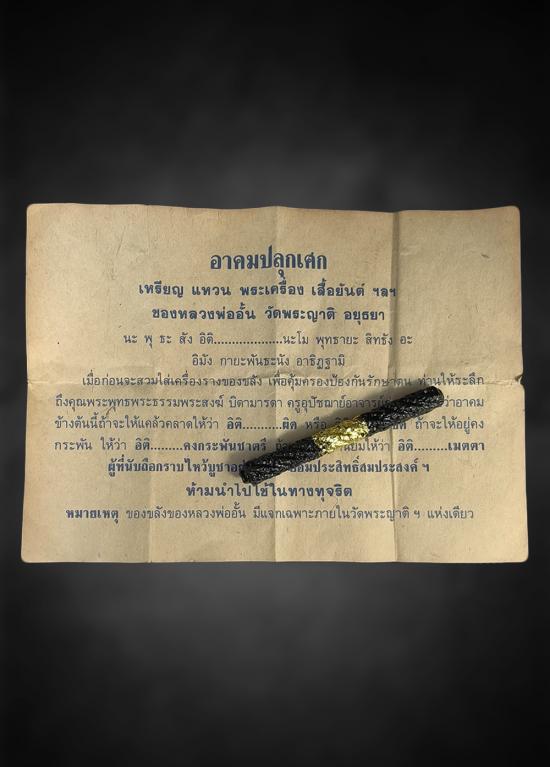 อาคมปลุกเศก
เหรียญ แหวน พระเครื่อง เสื้อยันต์ ฯลฯ
ของหลวงพ่ออั้น วัดพระญาติ อยุธยา
นะ พุ ธะ สัง อิติ...................นะโม พุทธายะ สิทธัง อะ
อิมัง กายะพันธะนัง อาธิฏฐามิ
เมื่อก่อนจะสวมใส่เครื่องรางของขลัง เพื่อคุ้มครองป้องกันรักษาตน ท่านให้ระลึก
ถึงคุณพระพุทธพระธรรมพระสงฆ์ บิดามารดา ครูอุปัชฌาย์อาจารย์ ว่าอาคม
ข้างต้นนี้ถ้าจะให้แคล้วคลาดให้ว่า อิติ.........ผิด หรือ ถ้าจะให้อยู่คง
กระพัน ให้ว่า อิติ.........คงกระพันชาตรี นิยมให้ว่า อิติ.........เมตตา
ผู้ที่นับถือกราบไหว้บูชา ย่อมประสิทธิ์สมประสงค์ ฯ
ห้ามนำไปใช้ในทางทุจริต
หมายเหตุ ของขลังของหลวงพ่ออั้น มีแจกเฉพาะภายในวัดพระญาติ ฯ แห่งเดียว